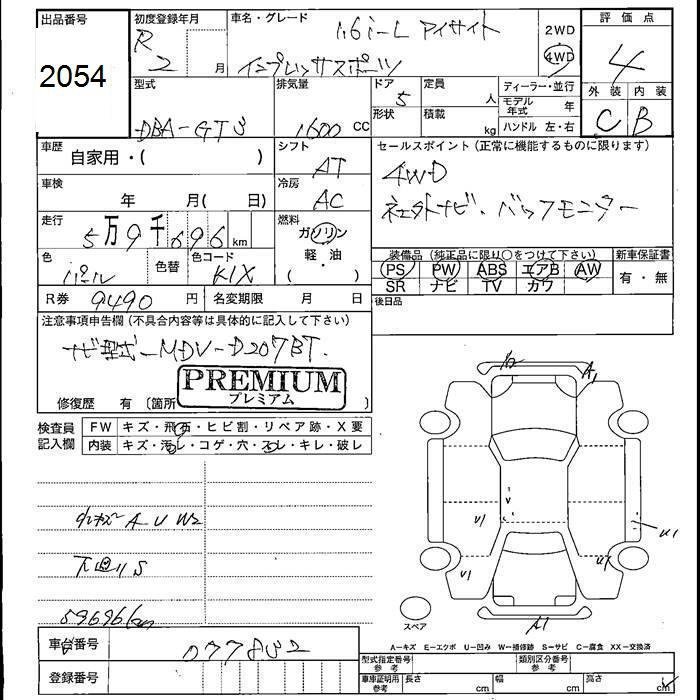 出品番号
2054
初度登録年月
R
2 月
車名・グレード
1.6i-L アイサイト
インプレッサスポーツ
2WD
4WD
評価点
4
外装 内装
C B
型式
DBA-GT3
排気量
1600 cc
ドア
5
形状
定員
人
積載
kg
ディーラー・並行
モデル年式 年
ハンドル 左・右
車歴
自家用・( )
シフト
AT
セールスポイント(正常に機能するものに限ります)
4WD
社外ナビ・バックモニター
車検
年 月( 日)
冷房
AC
走行
5万9千696 km
燃料
ガソリン
軽・油
( ・ )
色
パール
色替
色コード
K1X
装備品(純正品に限り○をつけて下さい)
PS PW ABS エアB AW
SR ナビ TV カワ
新車保証書
有・無
後日品
R券 9490 円
名変期限 月 日
注意事項申告欄(不具合内容等は具体的に記入して下さい)
ナビ型式-MDV-D207BT.
PREMIUM
プレミアム
修復歴 有 〔箇所 〕
検査員記入欄
FW キズ・飛石・ヒビ割・リペア跡・X要
内装 キズ・汚れ・コゲ・穴・スレ・キレ・破レ
A U W2
下回りS
59696km
A1
V
U1
U1
U1
スペア
A-キズ E-エクボ U-凹み W-補修跡 S-サビ C-腐食 XX-交換済
車台番号
077832
登録番号
型式指定番号
参考
類別区分番号
参考
車庫証明用
参考
長さ cm
幅 cm
高さ cm